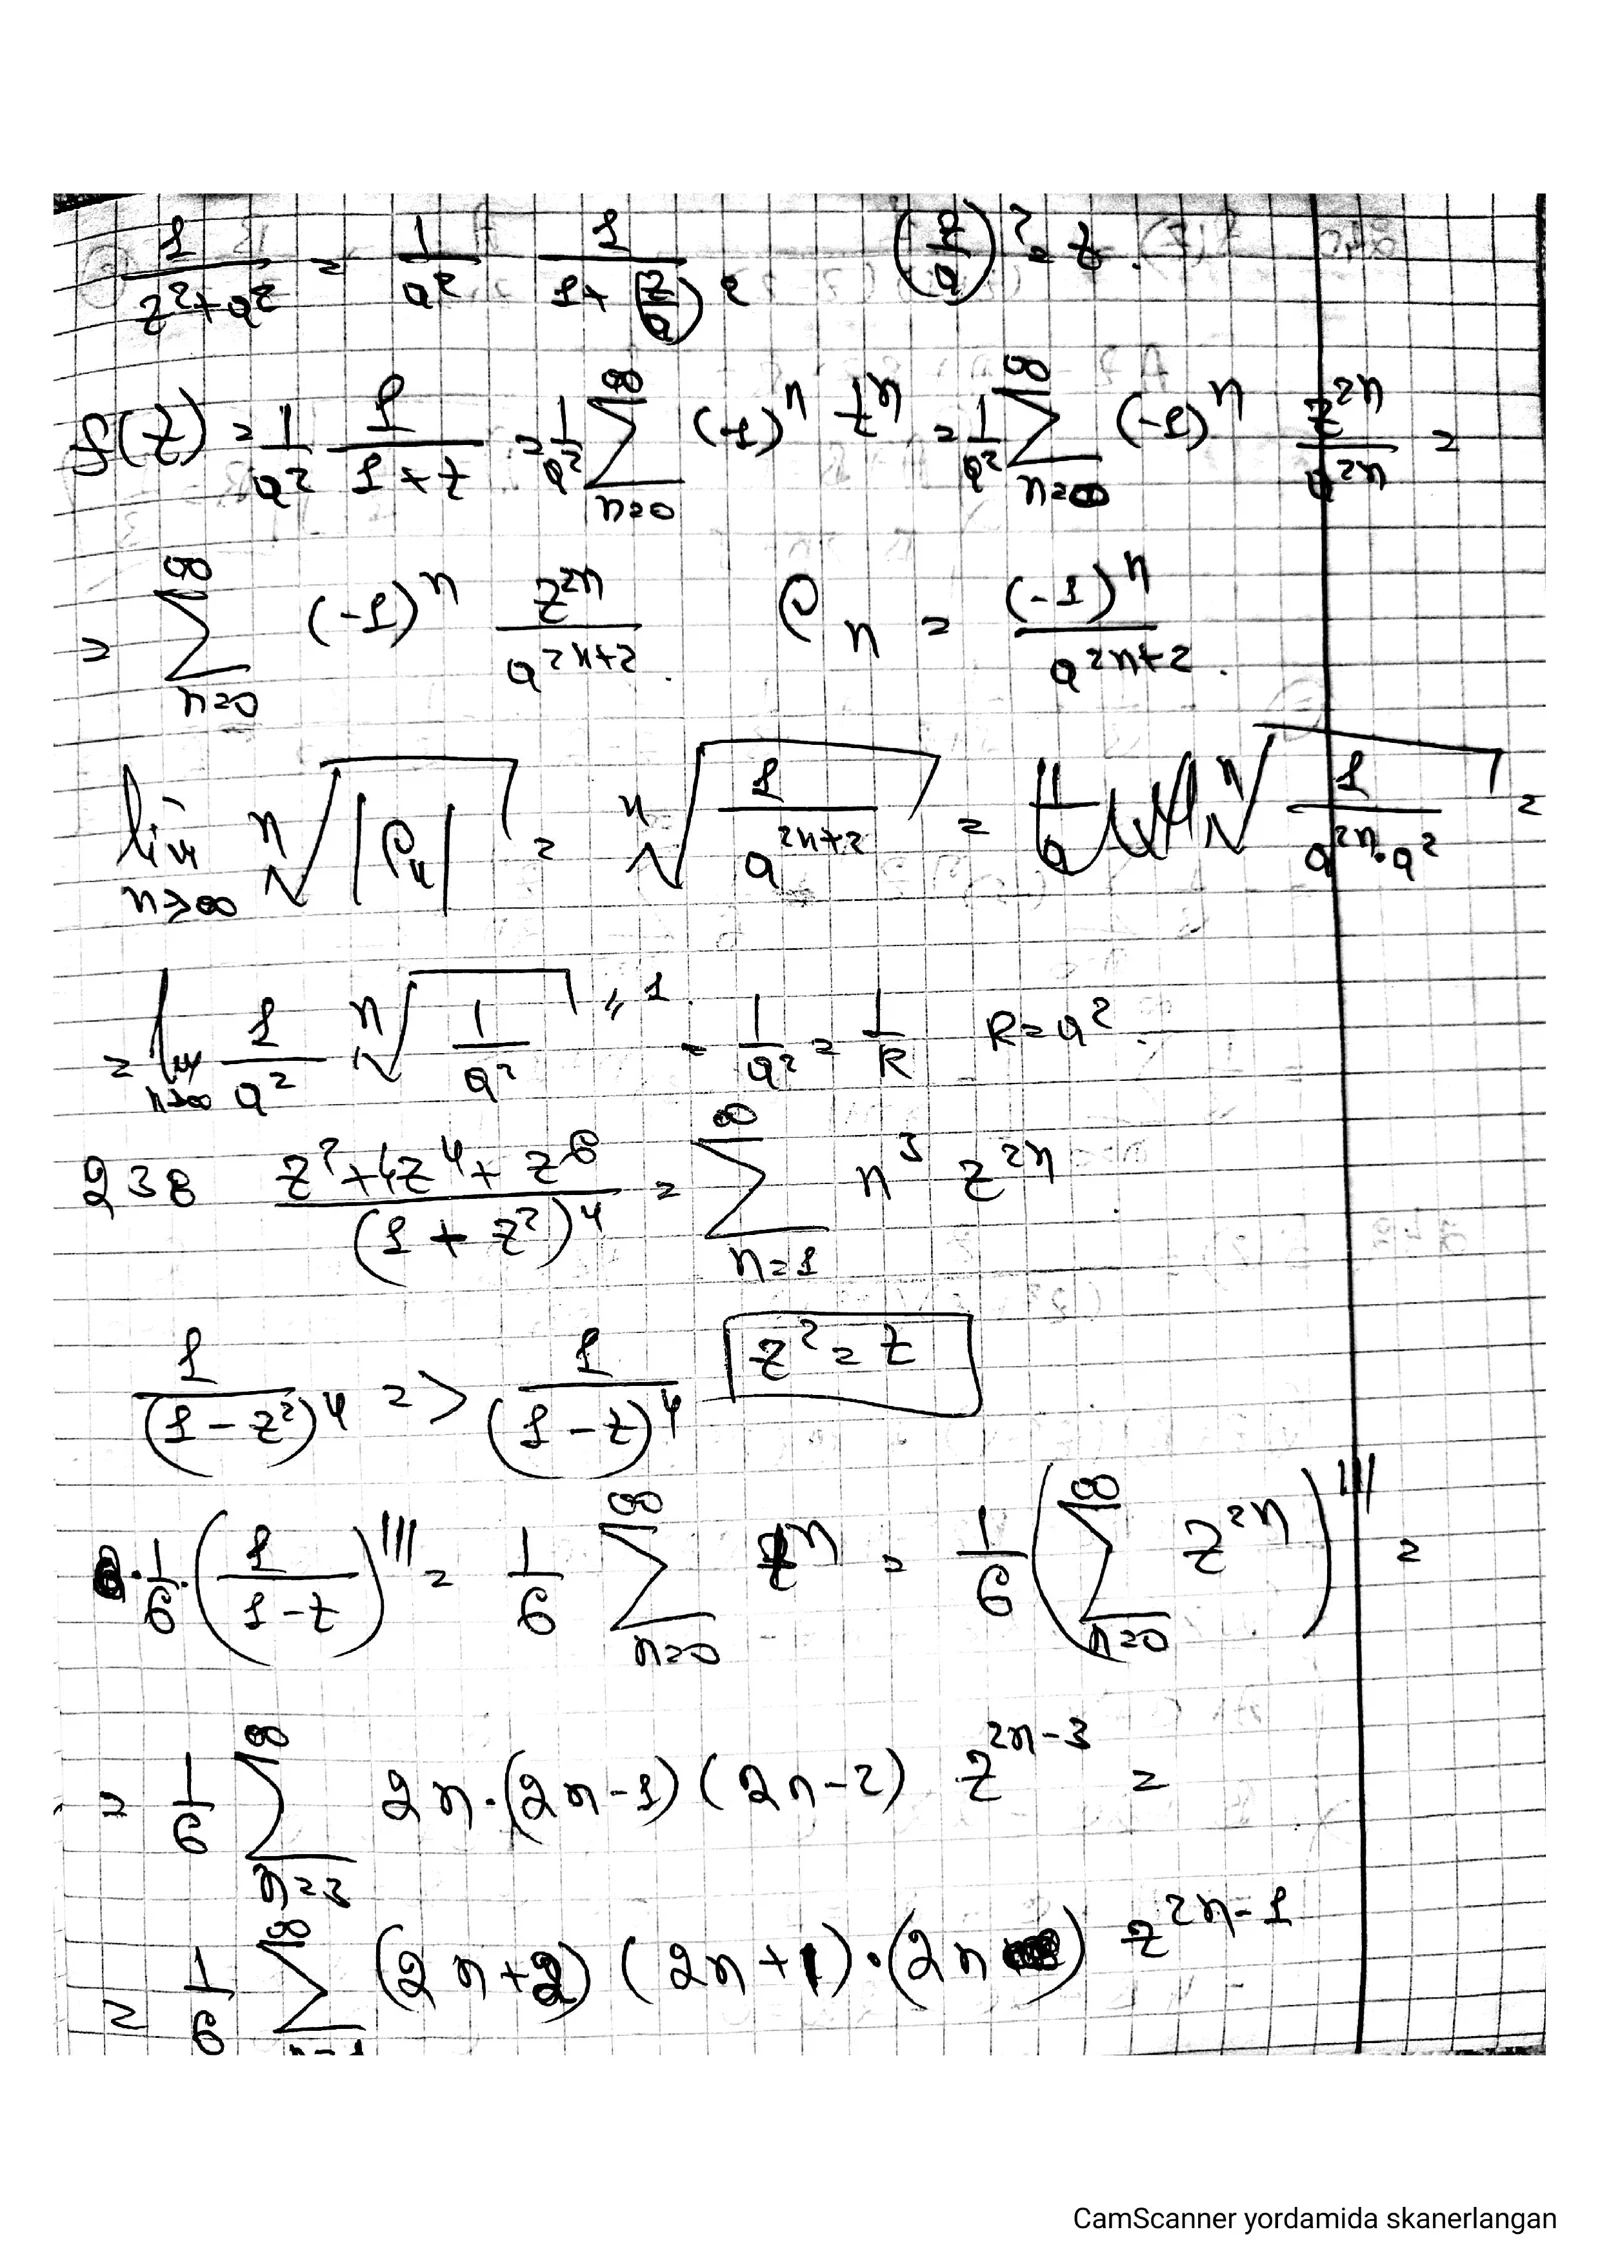 1/(z²+a²) = 1/a² 1/(1+(z/a)²) (z/a)² = t.
f(z) = 1/a² 1/(1+t) = 1/a² ∑_{n=0}^{∞} (-1)ⁿ tⁿ = 1/a² ∑_{n=0}^{∞} (-1)ⁿ z²ⁿ/a²ⁿ =
= ∑_{n=0}^{∞} (-1)ⁿ z²ⁿ/a²ⁿ⁺². Cₙ = (-1)ⁿ/a²ⁿ⁺².
lim_{n→∞} ⁿ√|Cₙ| = ⁿ√(1/a²ⁿ⁺²) = ⁿ√(1/(a²ⁿ·a²)) =
= lim_{n→∞} 1/a² ⁿ√(1/a²) "1 = 1/a² = 1/R R = a².
238 (z²+4z⁴+z⁶)/(1+z²)⁴ = ∑_{n=1}^{∞} n³ z²ⁿ
1/(1-z²)⁴ => 1/(1-t)⁴ z² = t
·1/6·(1/(1-t))''' = 1/6 ∑_{n=0}^{∞} tⁿ = 1/6 (∑_{n=0}^{∞} z²ⁿ)''' =
= 1/6 ∑_{n=3}^{∞} 2n·(2n-1)(2n-2) z²ⁿ⁻³ =
= 1/6 ∑_{n=1}^{∞} (2n+2)(2n+1)·(2n) z²ⁿ⁻¹
CamScanner yordamida skanerlangan